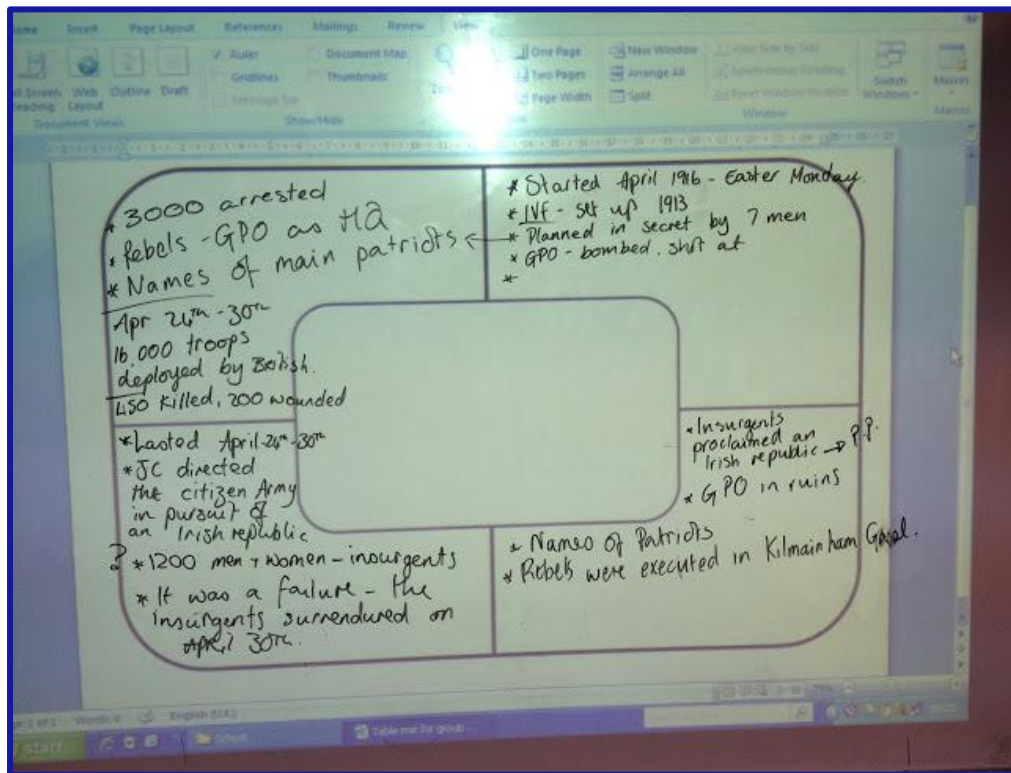 Insert Page Layout References Mailings Review View
Full Screen Reading Web Layout Outline Draft
Document Views
Ruler Document Map
Gridlines Thumbnails
Message Bar
Show/Hide
One Page
Two Pages
Page Width
New Window
Arrange All
Split
View Side by Side
Synchronous Scrolling
Reset Window Position
Window
Switch Windows
Macros
Macros
* 3000 arrested
* Rebels - GPO as HQ
* Names of main patriots
Apr 24th - 30th
16,000 troops
deployed by British.
450 killed, 200 wounded
* Started April 1916 - Easter Monday.
* IVF - set up 1913
* Planned in secret by 7 men
* GPO - bombed. shot at
*
* Lasted April 24th - 30th
* JC directed
the citizen Army
in pursuit of
an Irish republic
? * 1200 men + women - insurgents
* It was a failure - the
insurgents surrendured on
April 30th.
* Insurgents
proclaimed an
Irish republic → P.P.
* GPO in ruins
* Names of Patriots
* Rebels were executed in Kilmainham Gaol.
Words: 0 English (U.K.)
start
School
Table mat for group